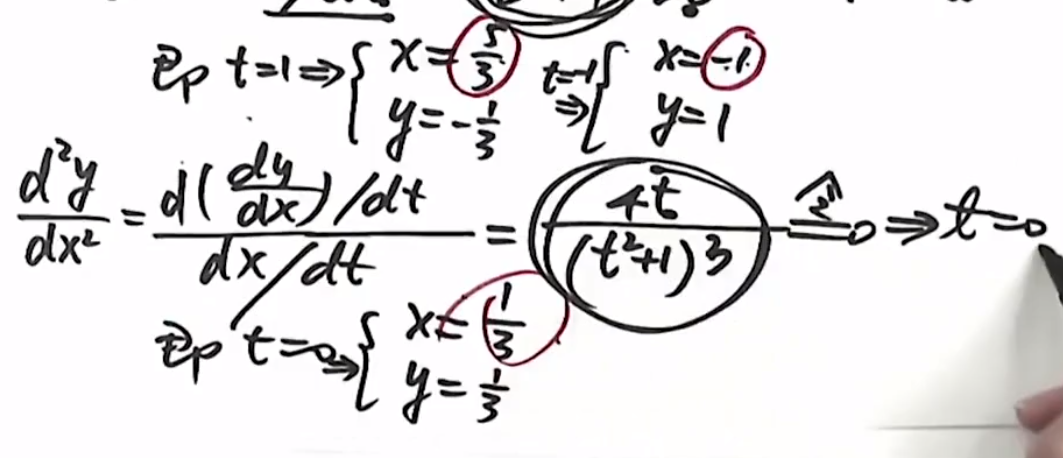 即 t=1 ⇒ { x=5/3 y=-1/3 t=-1 ⇒ { x=-1 y=1
d²y/dx² = d(dy/dx)/dt / dx/dt = 4t/(t²+1)3 令 = 0 ⇒ t=0
即 t=0 ⇒ { x=1/3 y=1/3